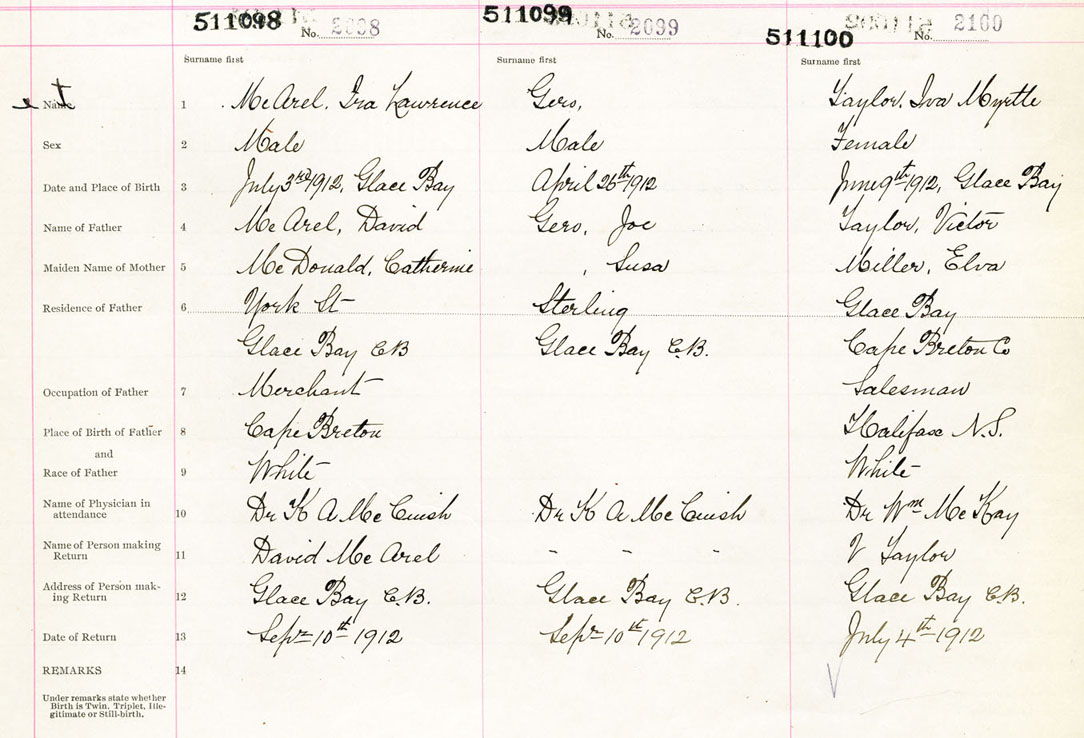 511098 No. 2098 511099 No. 2099 511100 No. 2100
Surname first Surname first Surname first
Name 1 McArel, Ira Lawrence Gero, Taylor, Iva Myrtle
Sex 2 Male Male Female
Date and Place of Birth 3 July 3rd 1912, Glace Bay April 26th 1912 June 9th 1912, Glace Bay
Name of Father 4 McArel, David Gero, Joe Taylor, Victor
Maiden Name of Mother 5 McDonald, Catherine , Susa Miller, Elva
Residence of Father 6 York St Sterling Glace Bay
Glace Bay C.B Glace Bay C.B. Cape Breton Co
Occupation of Father 7 Merchant Salesman
Place of Birth of Father 8 Cape Breton Halifax N.S.
and
Race of Father 9 White White
Name of Physician in
attendance 10 Dr K A McCuish Dr K A McCuish Dr Wm McKay
Name of Person making
Return 11 David McArel - - - V Taylor
Address of Person mak-
ing Return 12 Glace Bay C.B. Glace Bay C.B. Glace Bay C.B.
Date of Return 13 Sepr 10th 1912 Sepr 10th 1912 July 4th 1912
REMARKS 14
Under remarks state whether
Birth is Twin, Triplet, Ille-
gitimate or Still-birth.